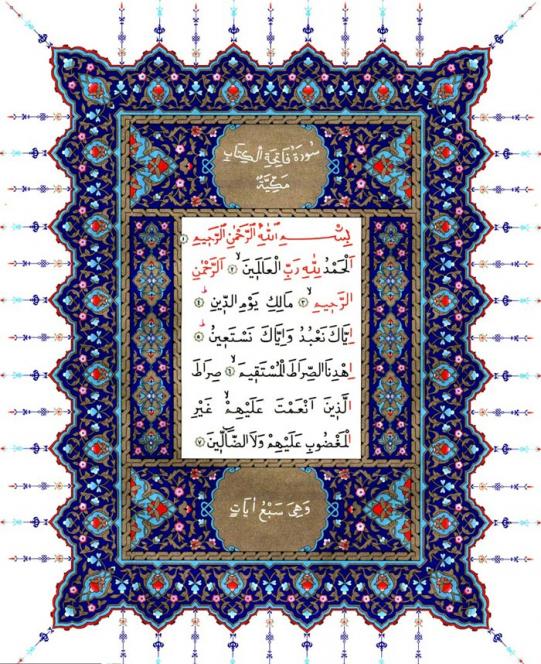 سُورَةُ فَاتِحَةِ الْكِتَابِ
مَكِّيَّةٌ
بِسْمِ اللّٰهِ الرَّحْمٰنِ الرَّحِيمِ ١
اَلْحَمْدُ لِلّٰهِ رَبِّ الْعَالَمِينَ ٢ اَلرَّحْمٰنِ
الرَّحِيمِ ٣ مَالِكِ يَوْمِ الدِّينِ ٤
اِيَّاكَ نَعْبُدُ وَاِيَّاكَ نَسْتَعِينُ ٥
اِهْدِنَا الصِّرَاطَ الْمُسْتَقِيمَ ٦ صِرَاطَ
الَّذِينَ اَنْعَمْتَ عَلَيْهِمْ غَيْرِ
الْمَغْضُوبِ عَلَيْهِمْ وَلَا الضَّالِّينَ ٧
وَهِيَ سَبْعُ اٰيَاتٍ